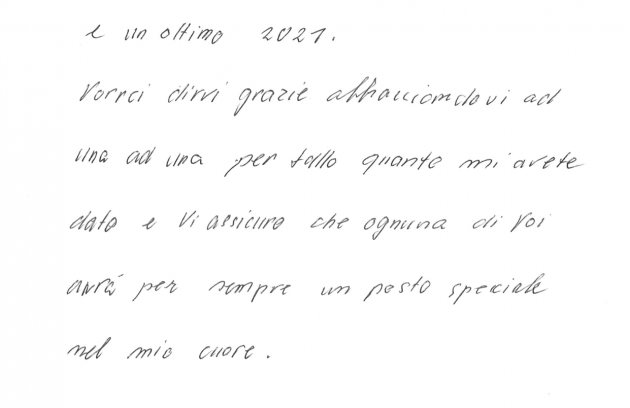 e un ottimo 2021.
Vorrei dirvi grazie abbracciandovi ad
una ad una per tutto quanto mi avete
dato e Vi assicuro che ognuna di Voi
avrà per sempre un posto speciale
nel mio cuore.